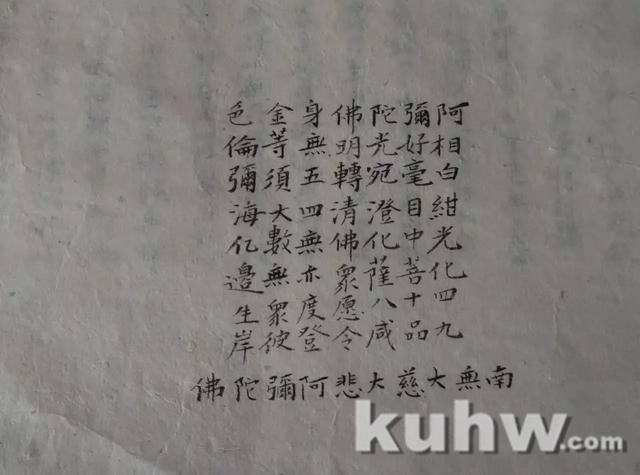 阿彌陀佛身金色
相好光明無等倫
白毫宛轉五須彌
紺目澄清四大海
光中化佛無數亿
化菩薩眾亦無邊
四十八愿度眾生
九品咸令登彼岸
南無大慈大悲阿彌陀佛
kuhw.com